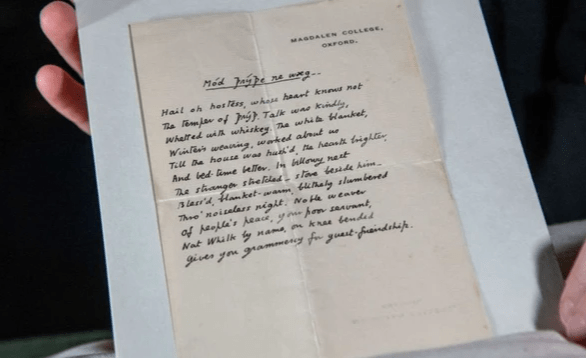 MAGDALEN COLLEGE,
OXFORD.
Mód Þrýþe ne wæg
Hail oh hostess, whose heart knows not
The temper of Þrýþ. Talk was kindly,
Whetted with whiskey. The white blanket,
Winter's weaving, worked about us
Till the house was hush'd, the hearth brighter,
And bed-time better. In billowy nest
The stranger stretched – stove beside him –
Bless'd, blanket-warm, blithely slumbered
Thro' noiseless night. Noble weaver
Of people's peace, your poor servant,
Nat Whilk by name, on knee bended
Gives you grammercy for guest-friendship.